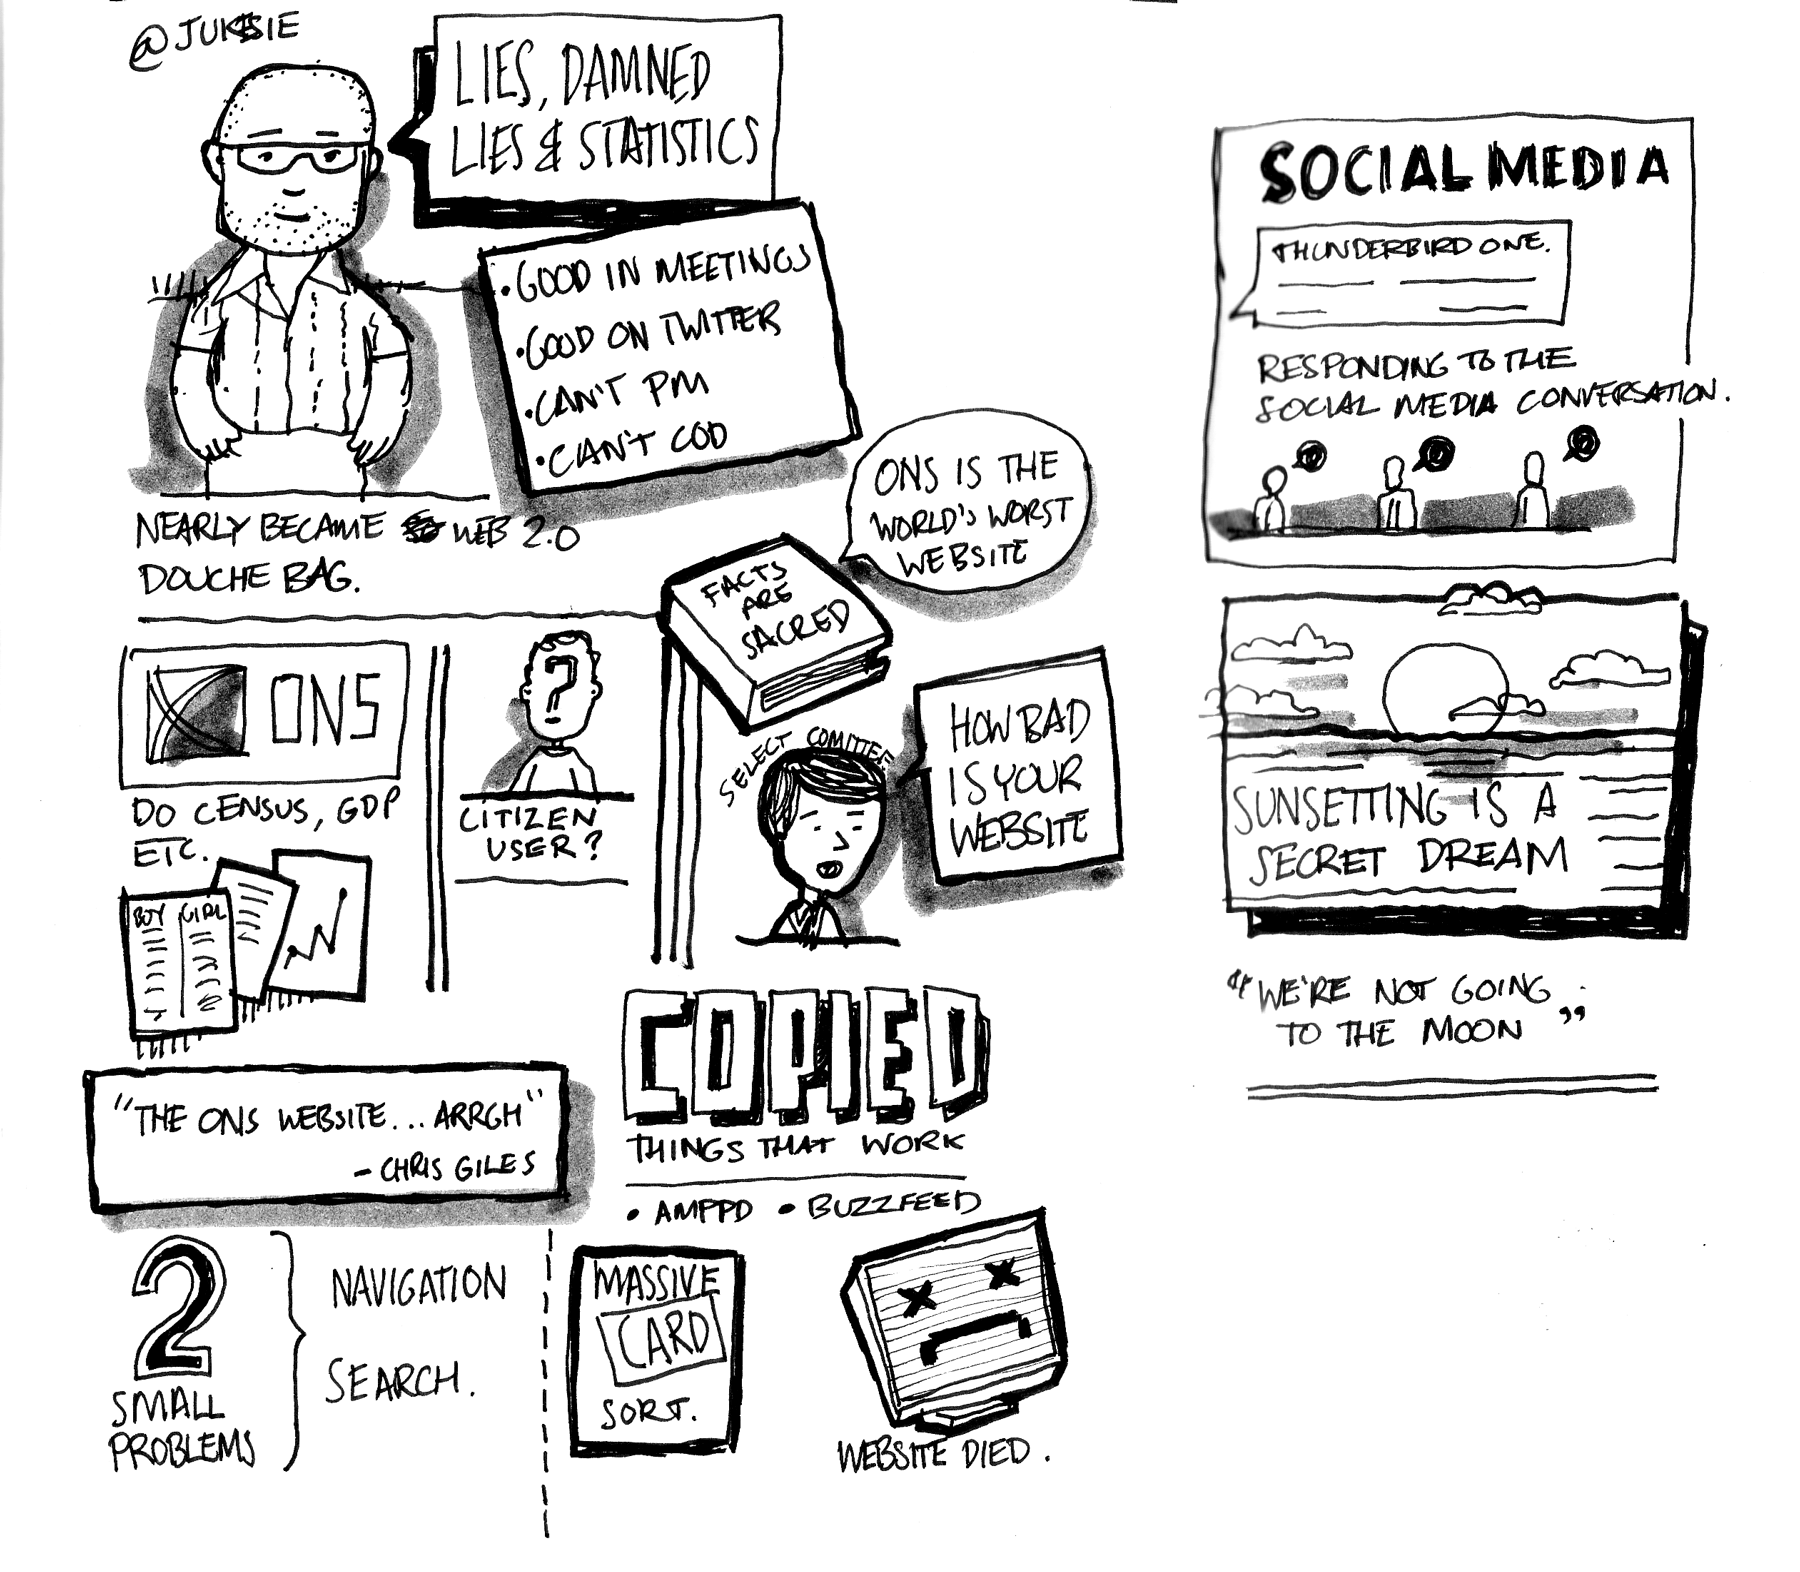 @JUKESIE
LIES, DAMNED
LIES & STATISTICS
• GOOD IN MEETINGS
• GOOD ON TWITTER
• CAN'T PM
• CAN'T COD
NEARLY BECAME WEB 2.0
DOUCHE BAG.
ONS IS THE
WORLD'S WORST
WEBSITE
FACTS
ARE
SACRED
ONS
DO CENSUS, GDP
ETC.
BOY GIRL
?
CITIZEN
USER?
SELECT COMITTEE
HOW BAD
IS YOUR
WEBSITE
"THE ONS WEBSITE... ARRGH"
- CHRIS GILES
COPIED
THINGS THAT WORK
• AMPPD • BUZZFEED
2
SMALL
PROBLEMS
NAVIGATION
SEARCH.
MASSIVE
CARD
SORT.
WEBSITE DIED.
SOCIAL MEDIA
THUNDERBIRD ONE.
RESPONDING TO THE
SOCIAL MEDIA CONVERSATION.
SUNSETTING IS A
SECRET DREAM
"WE'RE NOT GOING
TO THE MOON"